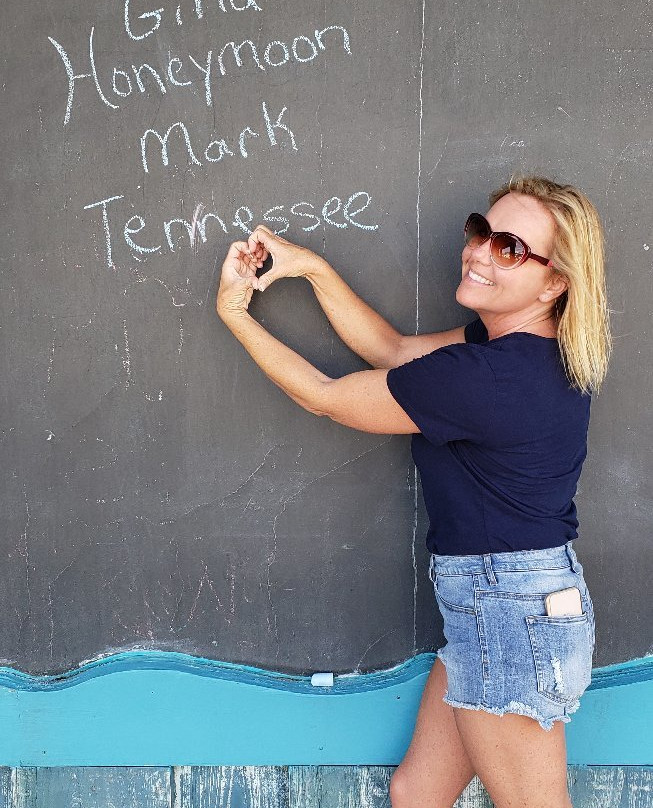 Gina
Honeymoon
Mark
Tennessee